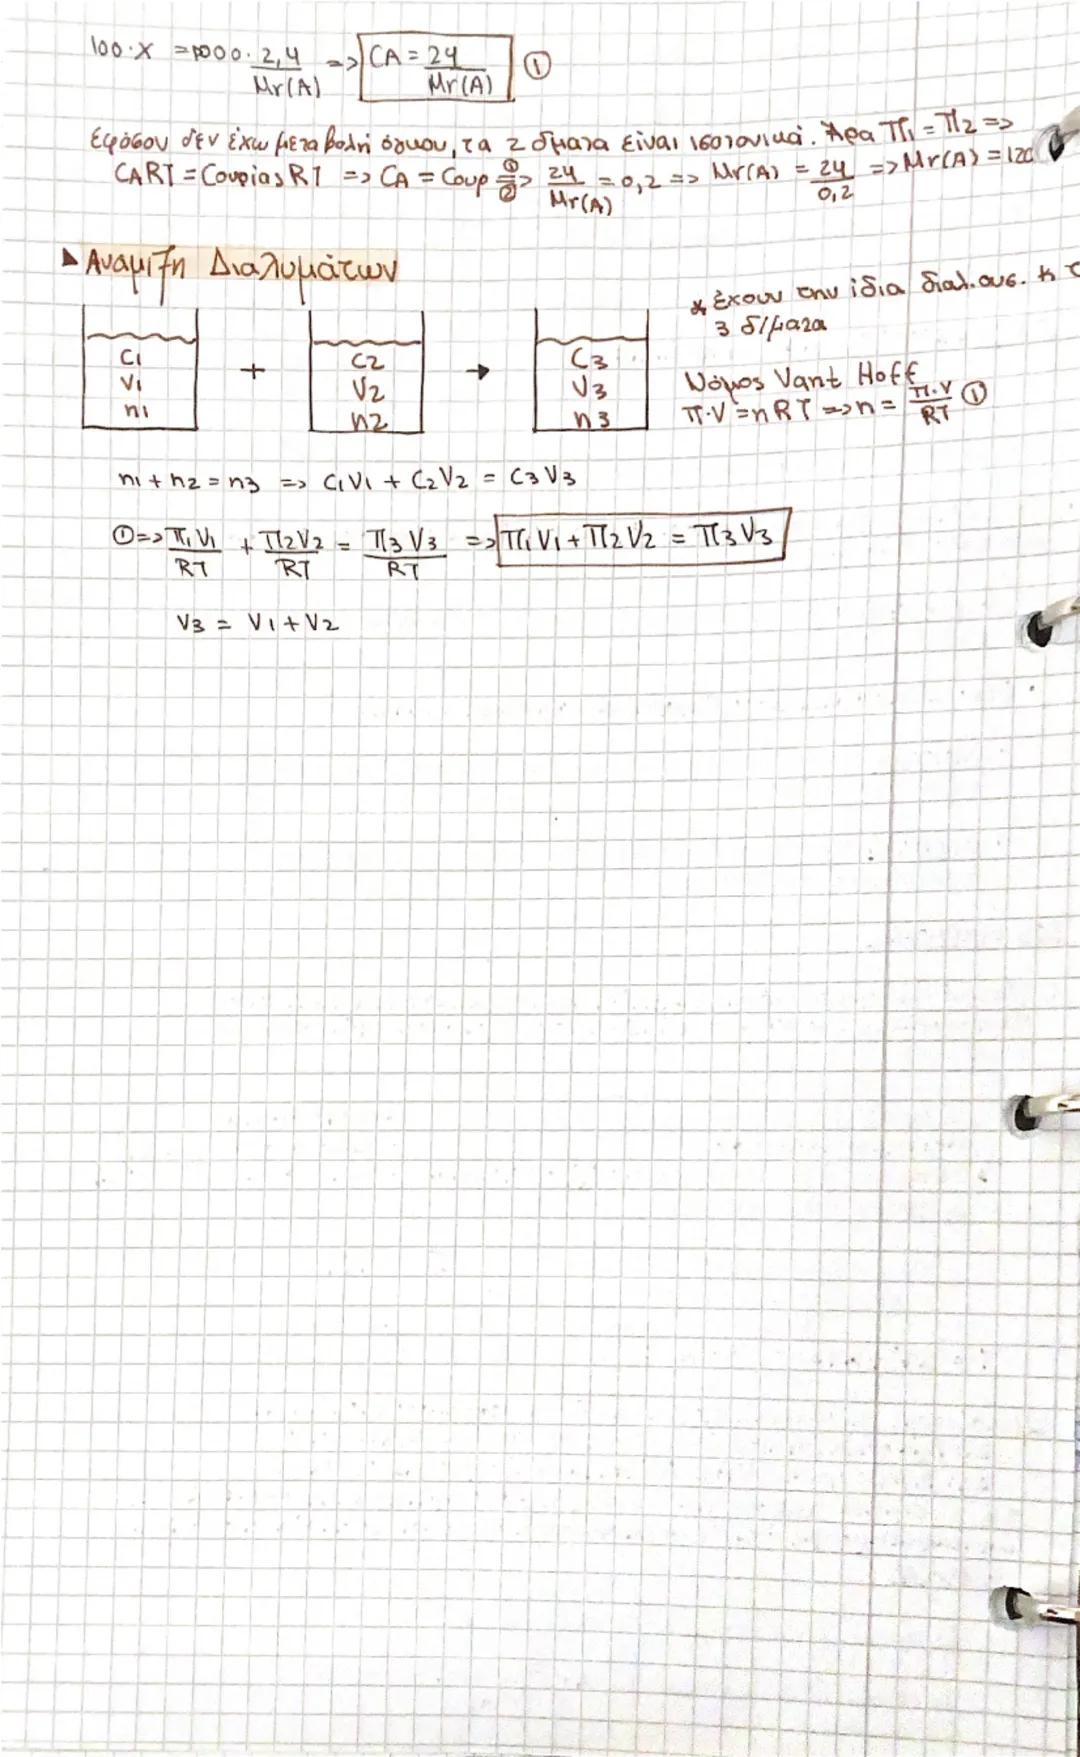 100·x = 1000· 2,4/Mr(A) => CA = 24/Mr(A) ①
Εφόσον δεν έχω μεταβολή όγκου, τα 2 δ/ματα είναι ισοτονικά. Άρα Π1 = Π2 =>
CART = Cουρίας RT => CA = Cουρ ①②=> 24/Mr(A) = 0,2 => Mr(A) = 24/0,2 => Mr(A) = 120
▸ Αναμιξη Διαλυμάτων
* έχουν την ίδια διαλ. ουσ. κ
3 δ/ματα
C1 + C2 → C3
V1 V2 V3
n1 n2 n3
Νόμος Vant Hoff
π·V = nRT => n = π·V/RT ①
n1 + n2 = n3 => C1V1 + C2V2 = C3V3
①=> Π1V1/RT + Π2V2/RT = Π3V3/RT => Π1V1 + Π2V2 = Π3V3
V3 = V1 + V2